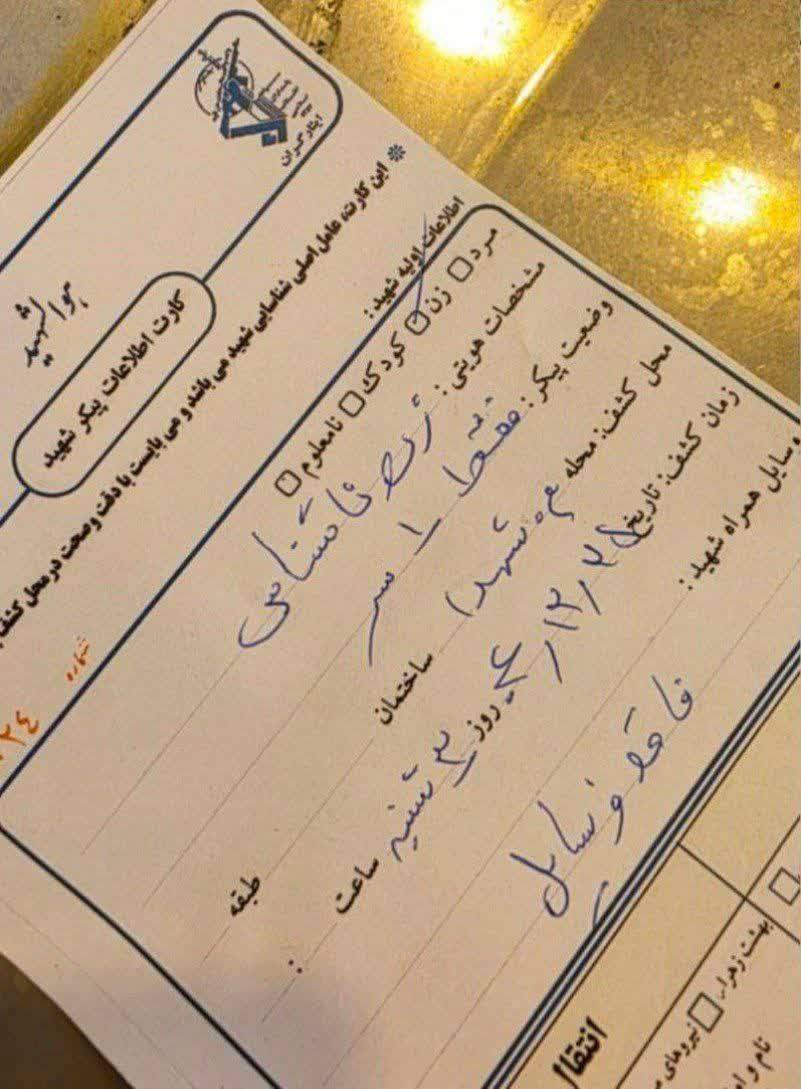 ایثارگران
هوالشهید
کارت اطلاعات پیکر شهید
* این کارت، عامل اصلی شناسایی شهید می باشد و می بایست با دقت و صحت در محل کشف
شماره
۲۴
اطلاعات اولیه شهید:
مرد □ زن ☑ کودک □ نامعلوم □
مشخصات هویتی: زن ناشناس
وضعیت پیکر: فقط ۱ سر
محل کشف: محله م. شهدا ساختمان طبقه
زمان کشف: تاریخ ۰۴/۱۲/۲۵ روز ۳ شنبه ساعت :
وسایل همراه شهید:
فاقد وسایل
انتقال
بهشت زهرا
نیروهای
نام و